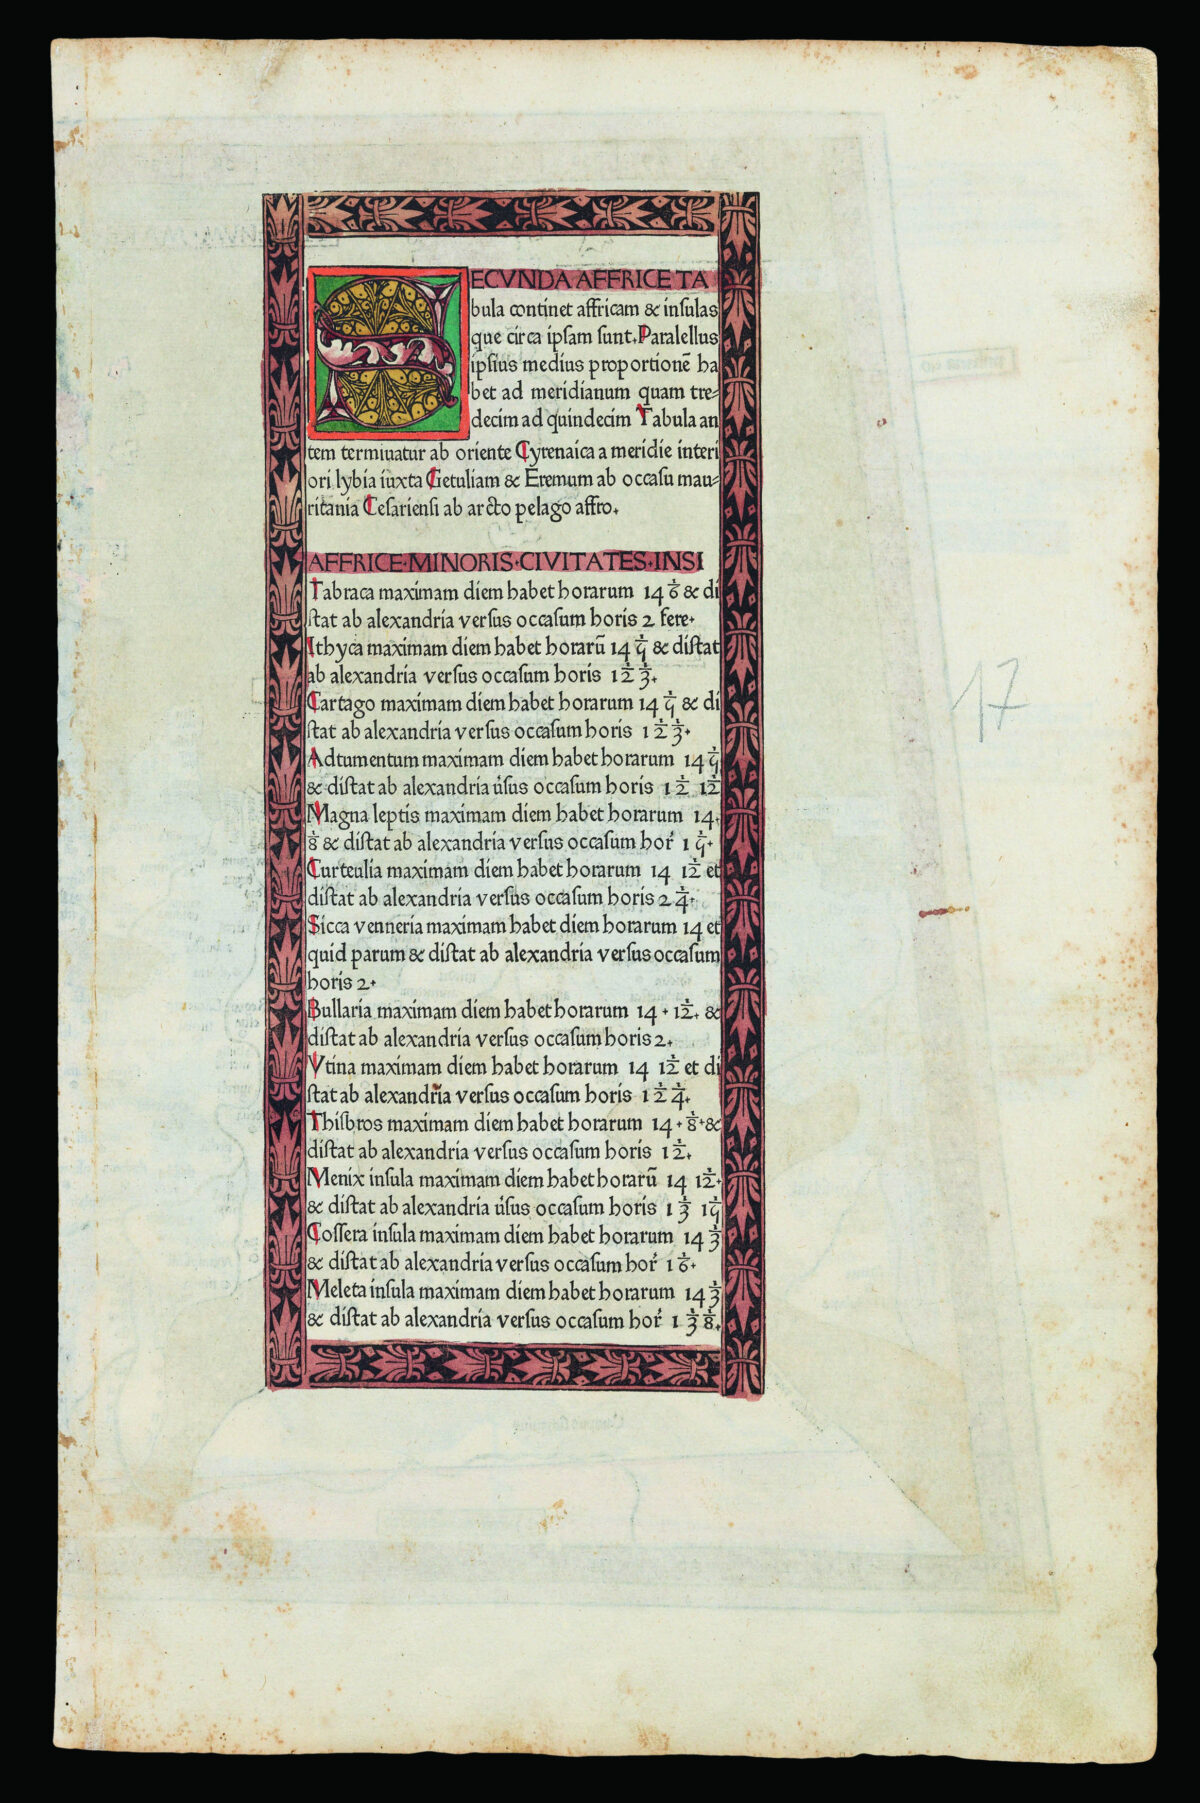 SECVNDA AFFRICE TA
bula continet affricam & insulas
que circa ipsam sunt. Paralellus
ipsius medius proportionē ha
bet ad meridianum quam tre-
decim ad quindecim Tabula an
tem termiuatur ab oriente Cyrenaica a meridie interi
ori lybia iuxta Getuliam & Eremum ab occasu mau-
ritania Cesariensi ab arcto pelago affro.
AFFRICE·MINORIS·CIVITATES·INSI
Tabraca maximam diem habet horarum 14 1/6 & di
stat ab alexandria versus occasum horis 2 fere.
Ithyca maximam diem habet horarū 14 1/4 & distat
ab alexandria versus occasum horis 1 1/2 1/3.
Cartago maximam diem habet horarum 14 1/4 & di
stat ab alexandria versus occasum horis 1 1/2 1/3.
Adtumentum maximam diem habet horarum 14 1/4
& distat ab alexandria u̓sus occasum horis 1 1/2 1/12
Magna leptis maximam diem habet horarum 14.
1/8 & distat ab alexandria versus occasum hor̓ 1 1/4.
Curteulia maximam diem habet horarum 14 1/12 et
distat ab alexandria versus occasum horis 2 1/4.
Sicca venneria maximam habet diem horarum 14 et
quid parum & distat ab alexandria versus occasum
horis 2.
Bullaria maximam diem habet horarum 14 . 1/12. &
distat ab alexandria versus occasum horis 2.
Vtina maximam diem habet horarum 14 1/12 et di
stat ab alexandria versus occasum horis 1 1/2 1/4.
Thisbros maximam diem habet horarum 14 . 1/8 . &
distat ab alexandria versus occasum horis 1 1/2.
Menix insula maximam diem habet horarū 14 1/12.
& distat ab alexandria u̓sus occasum horis 1 1/3 1/4
Cossera insula maximam diem habet horarum 14 1/3
& distat ab alexandria versus occasum hor̓ 1 1/6.
Meleta insula maximam diem habet horarum 14 1/3
& distat ab alexandria versus occasum hor̓ 1 1/3 1/8.
17